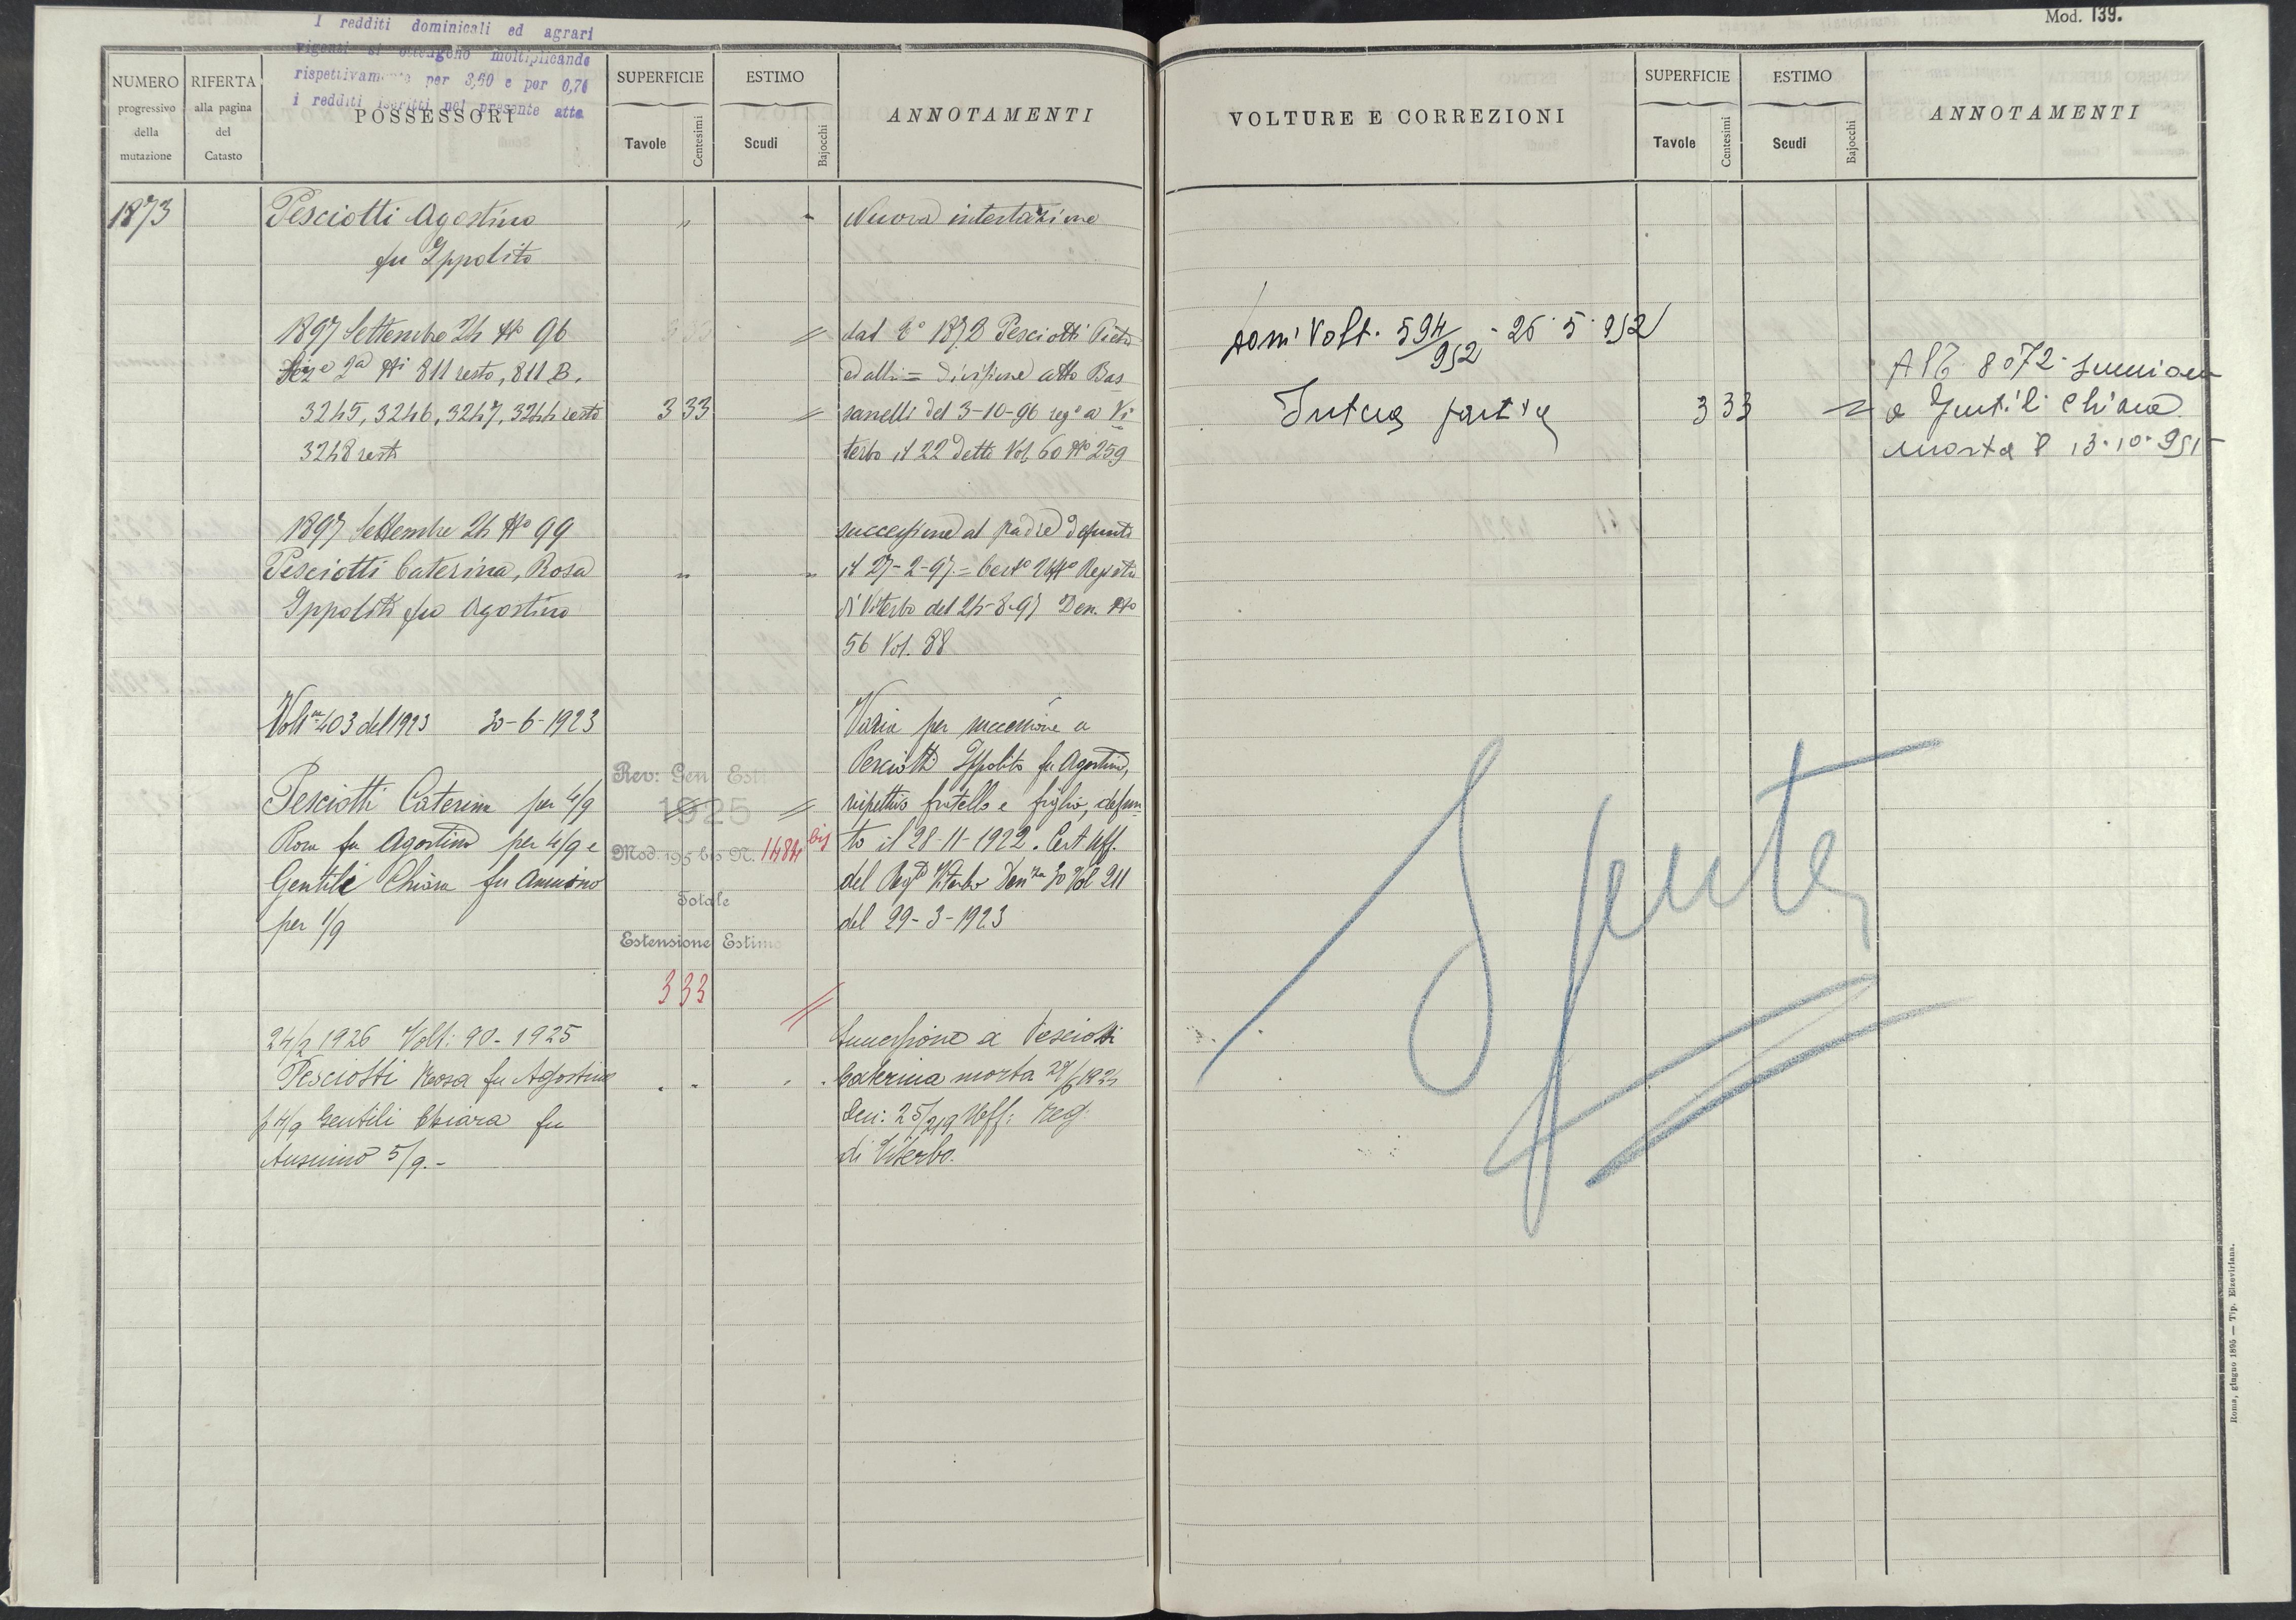 I redditi dominicali ed agrari
vigenti si ottengono moltiplicando
rispettivamente per 3,60 e per 0,76
i redditi iscritti nel presente atto
NUMERO
progressivo
della
mutazione
RIFERTA
alla pagina
del
Catasto
POSSESSORI
SUPERFICIE
Tavole
Centesimi
ESTIMO
Scudi
Bajocchi
ANNOTAMENTI
1873
Pesciotti Agostino
fu Ippolito
" "
Nuova intestazione
1897 Settembre 24 No 96
Sez.e 2a Ni 811 resto, 811 B.
3245, 3246, 3247, 3244 resto
3248 resto
3 33 =
dal 1872 Pesciotti Pietro
ed altri = divisione atto Bas
sanelli del 3-10-96 rego a Vi
terbo il 22 detto Vol. 60 No 259
1897 Settembre 24 No 99
Pesciotti Caterina, Rosa
Ippolito fu Agostino
" "
successione al padre defunto
il 27-2-97 = Certo Uffo Registro
di Viterbo del 24-8-97 Den. No
56 Vol. 88
Volt.a 403 del 1923 30-6-1923
Pesciotti Caterina per 4/9
Rosa fu Agostino per 4/9 e
Gentili Chiara fu
per 1/9
Rev: Gen Est
1925
Mod. 195 bis N. 1484 bis
Totale
Estensione Estimo
3 33 =
Varia per successione a
Pesciotti Ippolito fu Agostino,
rispettivo fratello e figlio, defun
to il 28-11-1922. Cert. Uff.
del Reg.o Viterbo Den.za 30 Vol 211
del 29-3-1923
24/2 1926 Volt: 90-1925
Pesciotti Rosa fu Agostino
p 4/9 Gentili Chiara fu
5/9.-
Successione a Pesciotti
Caterina morta
Den: 25/219 Uff: Reg.
di Viterbo.
Mod. 139.
VOLTURE E CORREZIONI
SUPERFICIE
Tavole
Centesimi
ESTIMO
Scudi
Bajocchi
ANNOTAMENTI
Volt. 594/952 - 26 5 952
Intera partita
3 33 =
Alla 8072
a Gentili Chiara
morta il 13-10-951
Spenta
Roma, giugno 1895 — Tip. Elzeviriana.